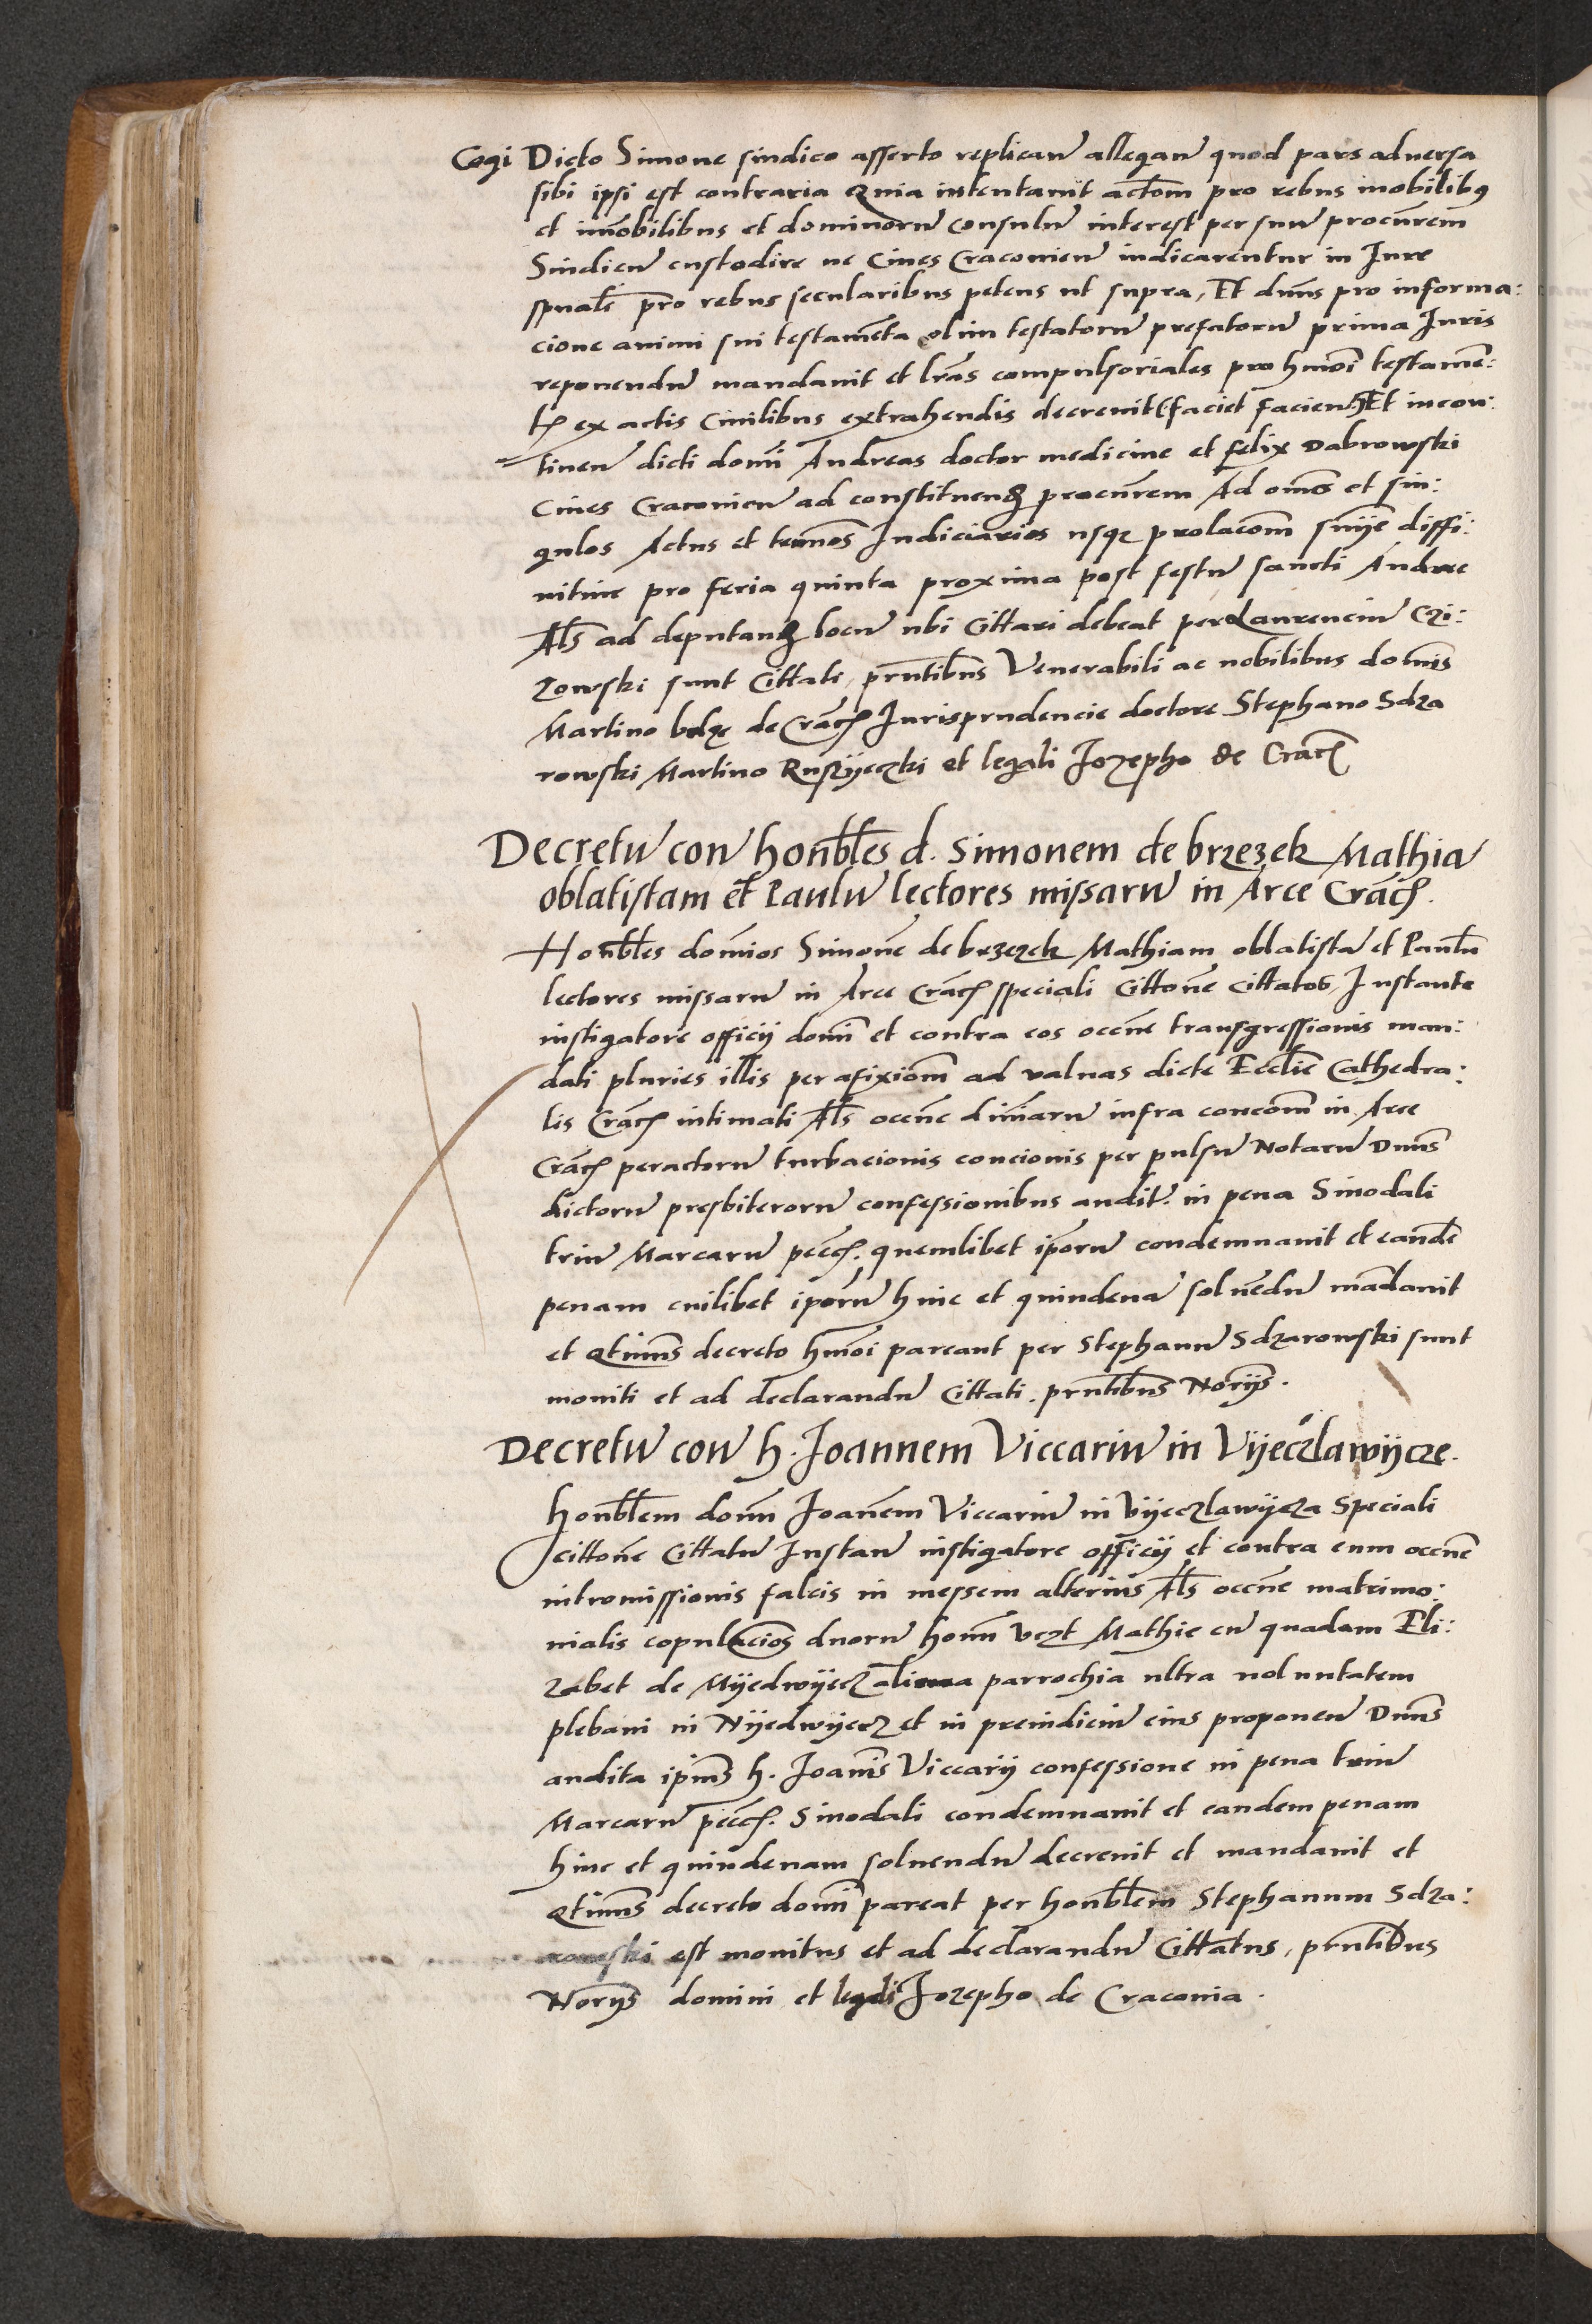 Cogi Dicto Simone sindico asserto replican̄ allegan̄ quod pars adversa
sibi ipsi est contraria Quia intentavit actōm pro rebus mobilibus
et im̄obilibus et dominorū consulū interest per suū procūrem
Sindicū custodire ne Cives Cracovien̄ iudicarentur in Jure
spūali pro rebus secularibus petens ut supra, Et dn̄s pro informa:
cione animi sui testamēta olim testatorū prefatorū prima Juris
reponendū mandavit et lrās compulsoriales pro hmōi testamē:
tis ex actis Civilibus extrahendis decrevit (faciet facien̄) Et incon:
tinen̄ dicti domī Andreas doctor medicine et Felix Dabrowski
Cives Cracovien̄ ad constituend̄ procūrem Ad omēs et sin:
gulos Actus et termōs Judiciarios usqꝫ prolacōm snīe diffi:
nitive pro feria quinta proxima post festū sancti Andree
Als̄ ad deputand̄ locū ubi Cittari debeat per Laurenciū Czi:
zowski sunt Cittati, prn̄tibus Venerabili ac nobilibus domīs
Martino de Crāc Jurisprudencie doctore Stephano Sdza
rowski Martino Ruszijeczki et legali Jozepho de Crac̄
Decretū con̄ honbl̄es d. Simonem de brzezek Mathiā
oblatistam et Paulū lectores missarū in Arce Crāc.
Honbl̄es domīos Simonē de brzezek Mathiam oblatistā et Paulū
lectores missarū in Arce Crāc speciali Cittōne Cittatos, Instante
instigatore officij domī et contra eos occn̄e transgressionis man:
dati pluries illis per afixiōm ad valvas dicte Eccl̄ie Cathedra:
lis Crāc intimati Als̄ occn̄e divinarū infra concōm in Arce
Crāc peractorū turbacionis concionis per pulsū Notarū Dn̄s
dictorū presbiterorū confessionibus audit. in pena Sinodali
triū Marcarū pecc. quemlibet ipōrū condemnavit et eandē
penam cuilibet ipōrū hinc et quindenā solvēdū mādavit
et Qtinus decreto hmōi pareant per Stephanū Sdzarowski sunt
moniti et ad declarandū Cittati. prn̄tibus Norijs.
Decretū con̄ h. Joannem Viccariū in Vijeczlawijcze.
Honbl̄em domī Joanēm Viccariū in Vijeczlawijcza Speciali
cittōne Cittatū Instan̄ instigatore officij et contra eum occn̄e
intromissionis falcis in messem alterius Als̄ occn̄e matrimo:
nialis copulacios duorū hom̄ vczt Mathie cū quadam Eli:
zabet de Mijedwijecz aliena parrochia ultra voluntatem
plebani in Nijedwijecz et in preiudiciū eius proponen̄ Dn̄s
audita ipīus h. Joanīs Viccarij confessione in pena triū
Marcarū pecc. Sinodali condemnavit et eandem penam
hinc et quindenam solvendū decrevit et mandavit et
Qtinus decreto domī pareat per honbl̄em Stephanum Sdza:
rowski est monitus et ad declarandū Cittatus, prn̄tibus
Norijs domini et legali Jozepho de Cracovia.